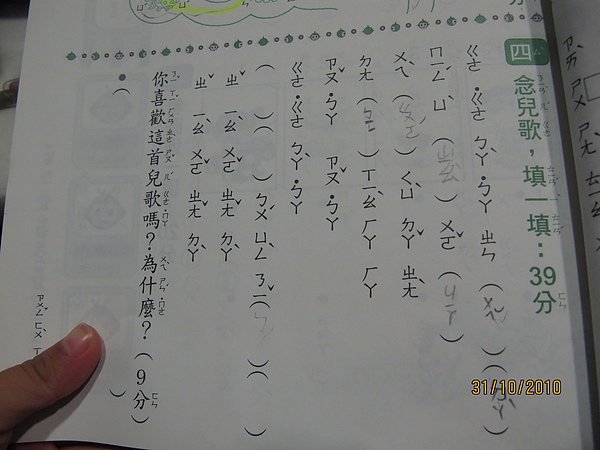 四 念兒歌,填一填:39分
ㄍㄜ ˙ㄍㄜ ㄅㄚˋ ˙ㄅㄚ ㄓㄣ (ㄨㄟˇ)(ㄉㄚˋ)
ㄇㄧㄥˊ ㄩˋ (ㄓㄠˋ) ㄨㄛˇ ( )
ㄨㄟˋ ( ) ㄑㄩˋ ㄉㄚˇ ㄓㄤˋ
ㄉㄤ ( ) ㄒㄧㄠˋ ㄏㄚ ㄏㄚ
ㄗㄡˇ ˙ㄅㄚ ㄗㄡˇ ˙ㄅㄚ
ㄍㄜ ˙ㄍㄜ ㄅㄚˋ ˙ㄅㄚ
( )( ) ㄅㄨˊ ㄩㄥˋ ㄋㄧˇ ( )( )
ㄓˇ ㄧㄠˋ ㄨㄛˇ ㄓㄤˇ ㄉㄚˋ
ㄓˇ ㄧㄠˋ ㄨㄛˇ ㄓㄤˇ ㄉㄚˋ
你喜歡這首兒歌嗎?為什麼?(9分)
( )
31/10/2010